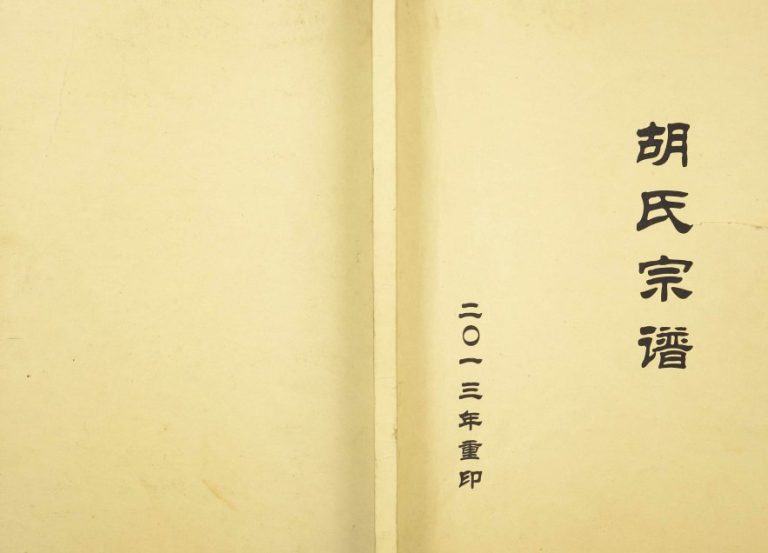 胡氏宗谱
二〇一三年重印